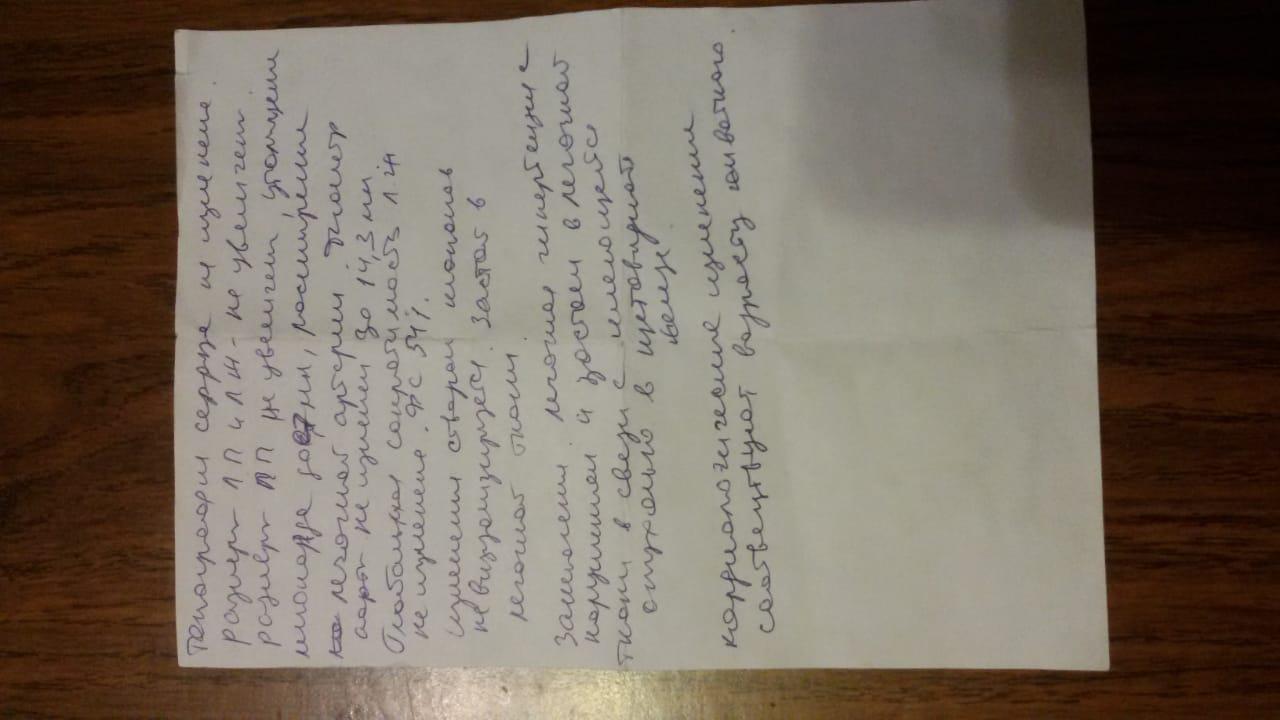 Топография сердца не изменена.
размер ЛП и ЛЖ - не увеличен.
размер ПП не увеличен, утолщен
миокарда до 7 мм, расширения
легочной артерии. Диаметр
аорт не изменен до 14,3 мм,
Глобальная сократимость ЛЖ
не изменена. ФС 54%.
изменения створок клапанов
не визуализируется. Застой в
легочной ткани.
Заключение. легочная гипертензия с
нарушением и застоем в легочной
ткани в связи с имеющейся
опухолью в щитовидной
железе
кардиологические изменения
соответствуют возрасту животного.